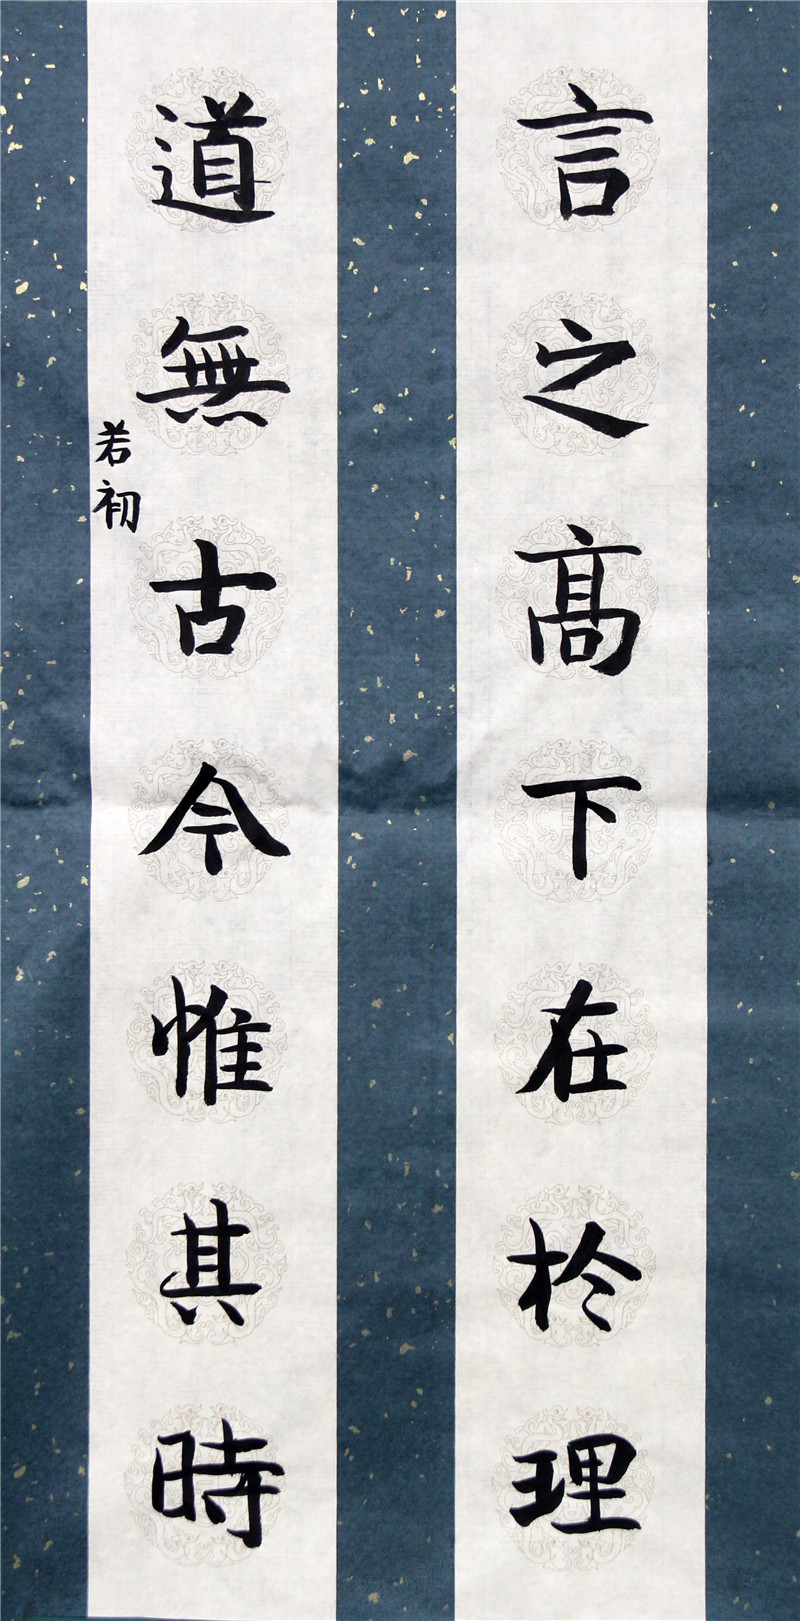 言之高下在於理
道無古今惟其時
若初